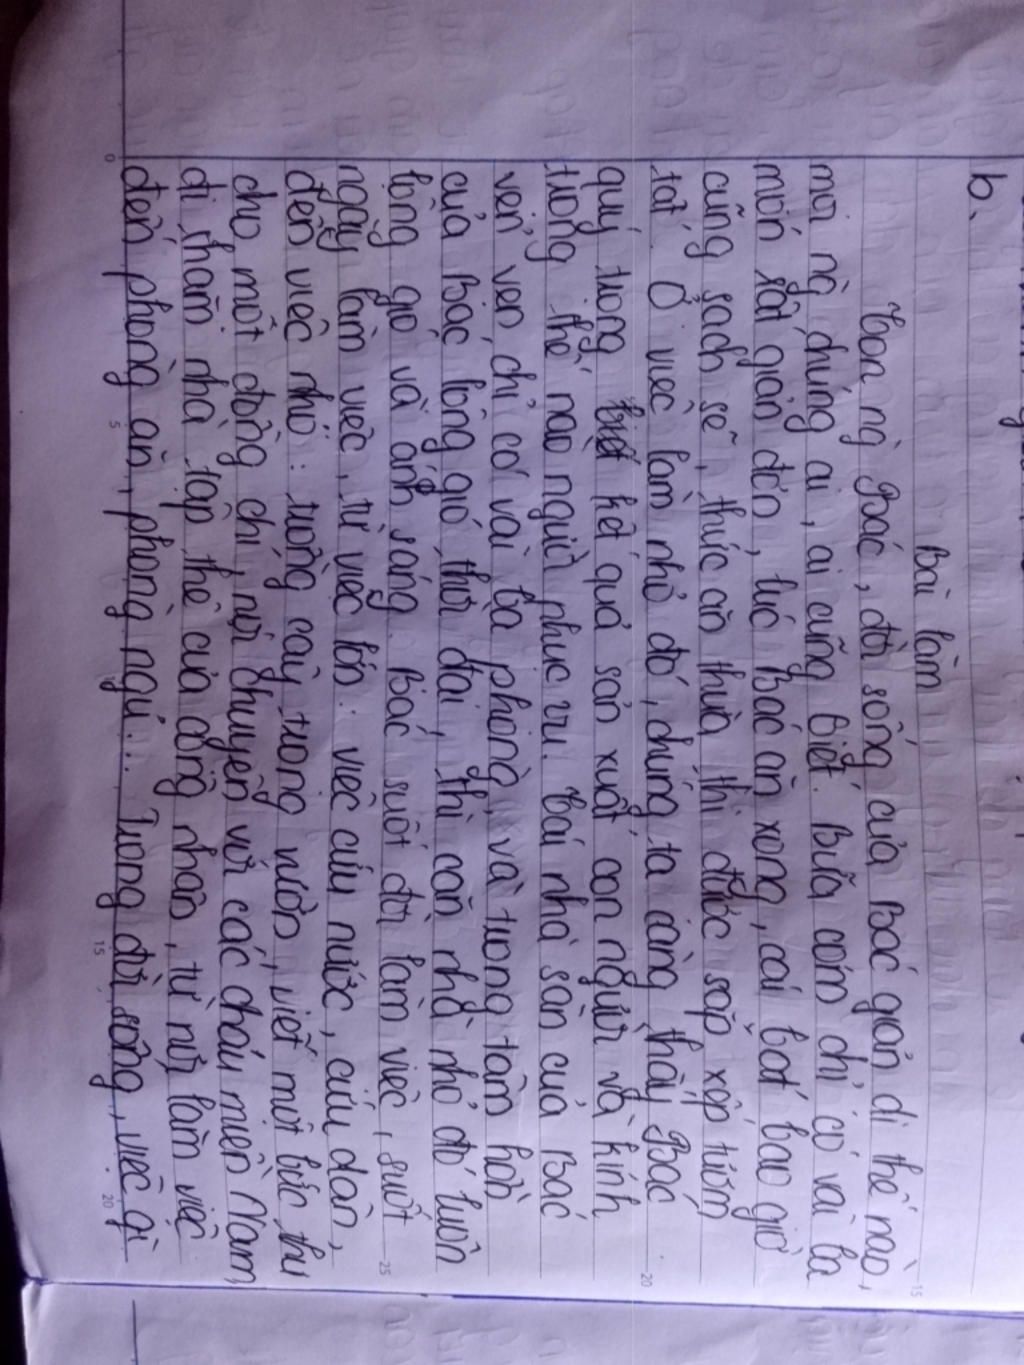 b.
Bài làm
Con ng Bác, đời sống của Bác giản dị thế nào,
mọi ng chúng ai, ai cũng biết. Bữa cơm chỉ có vài ba
món rất giản đơn, lúc Bác ăn xong, cái bát bao giờ
cũng sạch sẽ, thức ăn thừa thì được sắp xếp tươm
tất. Ở việc làm nhỏ đó, chúng ta càng thấy Bác
quý trọng kết quả sản xuất con người và kính
trọng thế nào người phục vụ. Cái nhà sàn của Bác
vẻn vẹn chỉ có vài ba phòng, và trong tâm hồn
của Bác lông gió thời đại, thì căn nhà nhỏ đó luôn
lông gió và ánh sáng. Bác suốt đời làm việc, suốt
ngày làm việc, từ việc lớn: việc cứu nước, cứu dân,
đến việc nhỏ: trồng cây trong vườn, viết một bức thư
cho một đồng chí, nói chuyện với các cháu miền Nam,
đi thăm nhà tập thể của công nhân, từ nơi làm việc
đến phòng ăn, phòng ngủ... Trong đời sống, việc gì